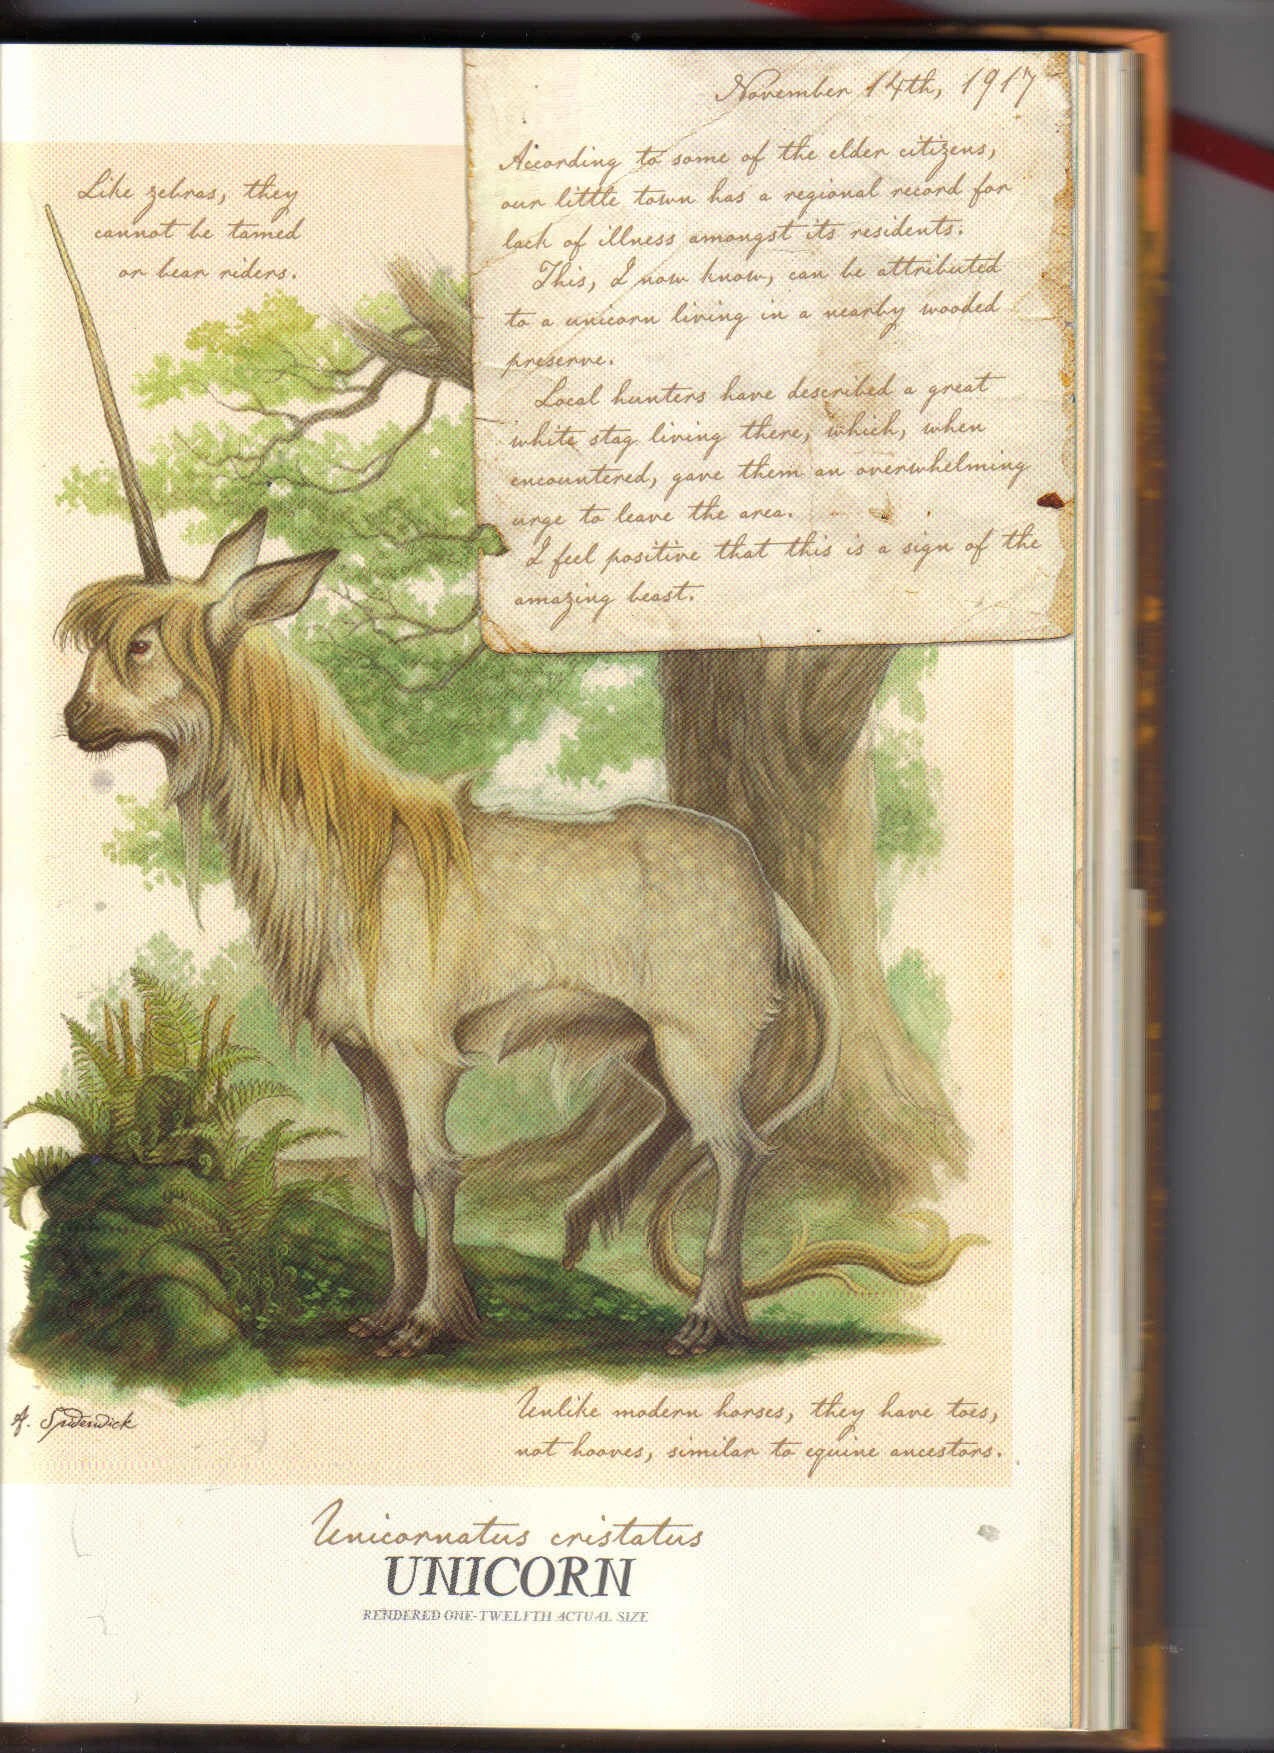 November 14th, 1917
According to some of the elder citizens,
our little town has a regional record for
lack of illness amongst its residents.
This, I now know, can be attributed
to a unicorn living in a nearby wooded
preserve.
Local hunters have described a great
white stag living there, which, when
encountered, gave them an overwhelming
urge to leave the area.
I feel positive that this is a sign of the
amazing beast.
Like zebras, they
cannot be tamed
or bear riders.
A. Spiderwick
Unlike modern horses, they have toes,
not hooves, similar to equine ancestors.
Unicornatus cristatus
UNICORN
RENDERED ONE-TWELFTH ACTUAL SIZE